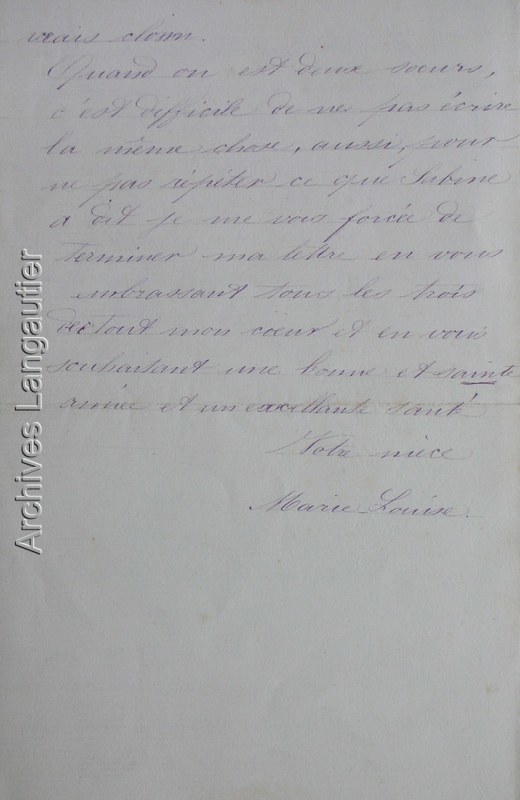 vrais clown.
Quand on est deux soeurs,
c'est difficile de ne pas écrire
la même chose, aussi, pour
ne pas répéter ce que Sabine
a dit je me vois forcée de
terminer ma lettre en vous
embrassant tous les trois
de tout mon coeur et en vous
souhaitant une bonne et sainte
année et un excellante santé
Votre nièce
Marie Louise.
Archives Langautier